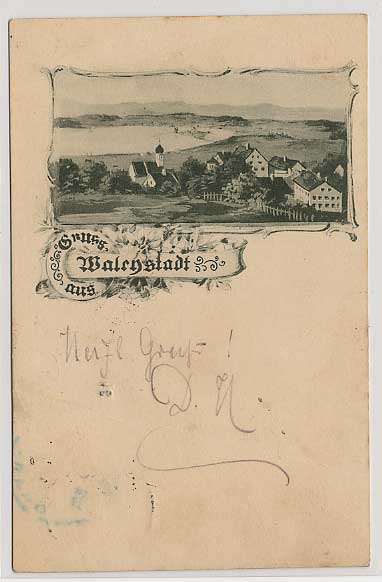 Gruss
aus
Walchstadt
Herzl. Gruß !
D. N.